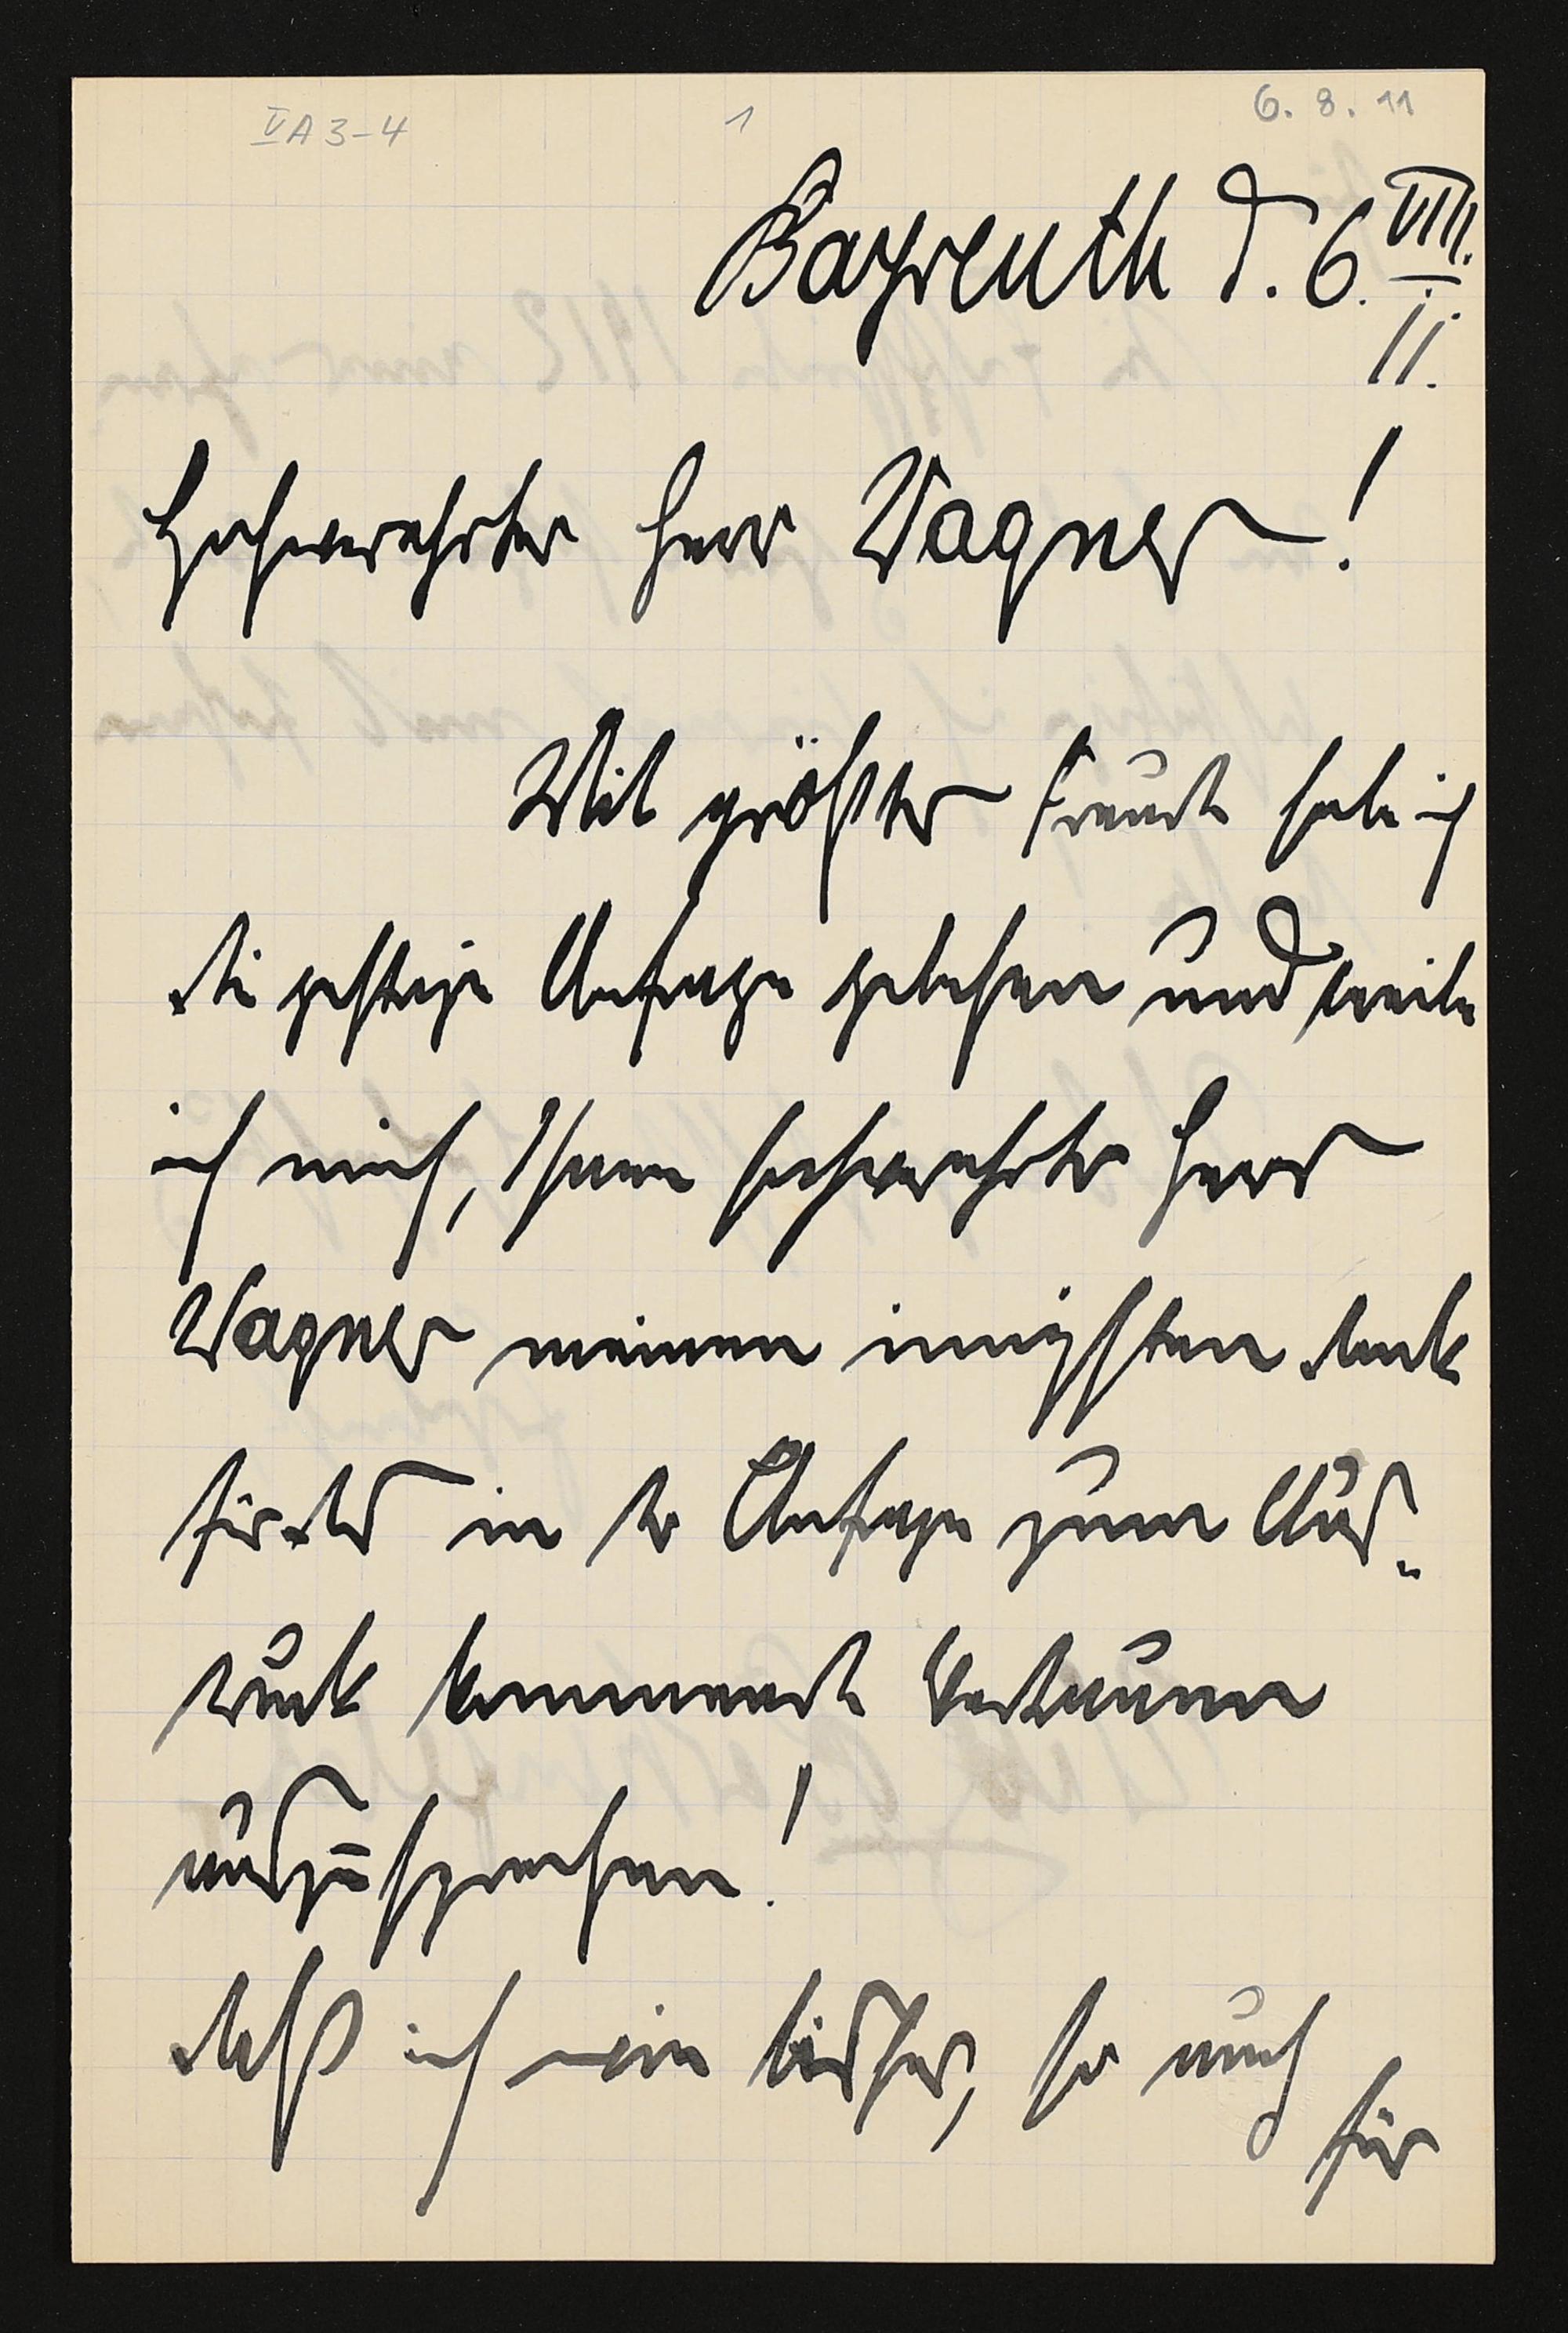 VA3-4 1 6. 8. 11
Bayreuth d. 6. VIII.
11.
Hochverehrter Herr Wagner!
Mit größter Freude habe ich
die gestrige Anfrage gelesen und beeile
ich mich, Ihnen hochverehrter Herr
Wagner meinen innigsten Dank
für das in der Anfrage zum Aus-
druck kommende Vertrauen
auszusprechen!
Daß ich wie bisher, so auch
für